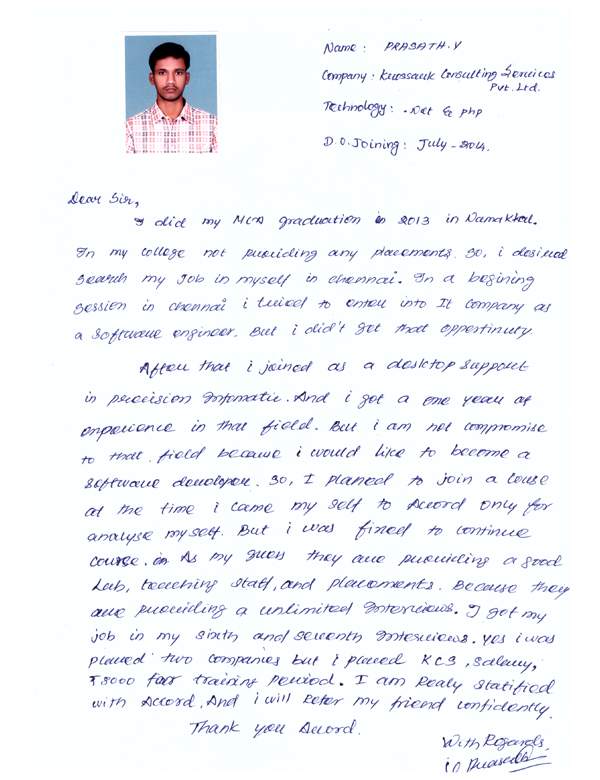 Name: PRASATH.Y
Company: Kurssauk Consulting Services
Pvt. Ltd.
Technology: .Net & php
D.O.Joining: July - 2014.
Dear Sir,
I did my MCA graduation in 2013 in Namakkal.
In my college not providing any placements. So, i desired
search my Job in myself in chennai. In a begining
session in chennai i tried to enter into It company as
a software engineer. But i didn't got that oppertinuty.
After that i joined as a desktop support
in precision Infomatic. And i got a one year of
experience in that field. But i am not compromise
to that field because i would like to become a
software developer. So, I planed to join a Course
at the time i came my self to Accord only for
analyse myself. But i was fixed to continue
course. As my guess they are providing a good
Lab, teaching staff, and placements. Because they
are providing a unlimited Interviews. I got my
job in my sixth and seventh Interviews. yes i was
placed two companies but i placed KCS, salary,
₹8000 for training period. I am Realy statified
with Accord, And i will Refer my friend confidently.
Thank you Accord.
With Regards,